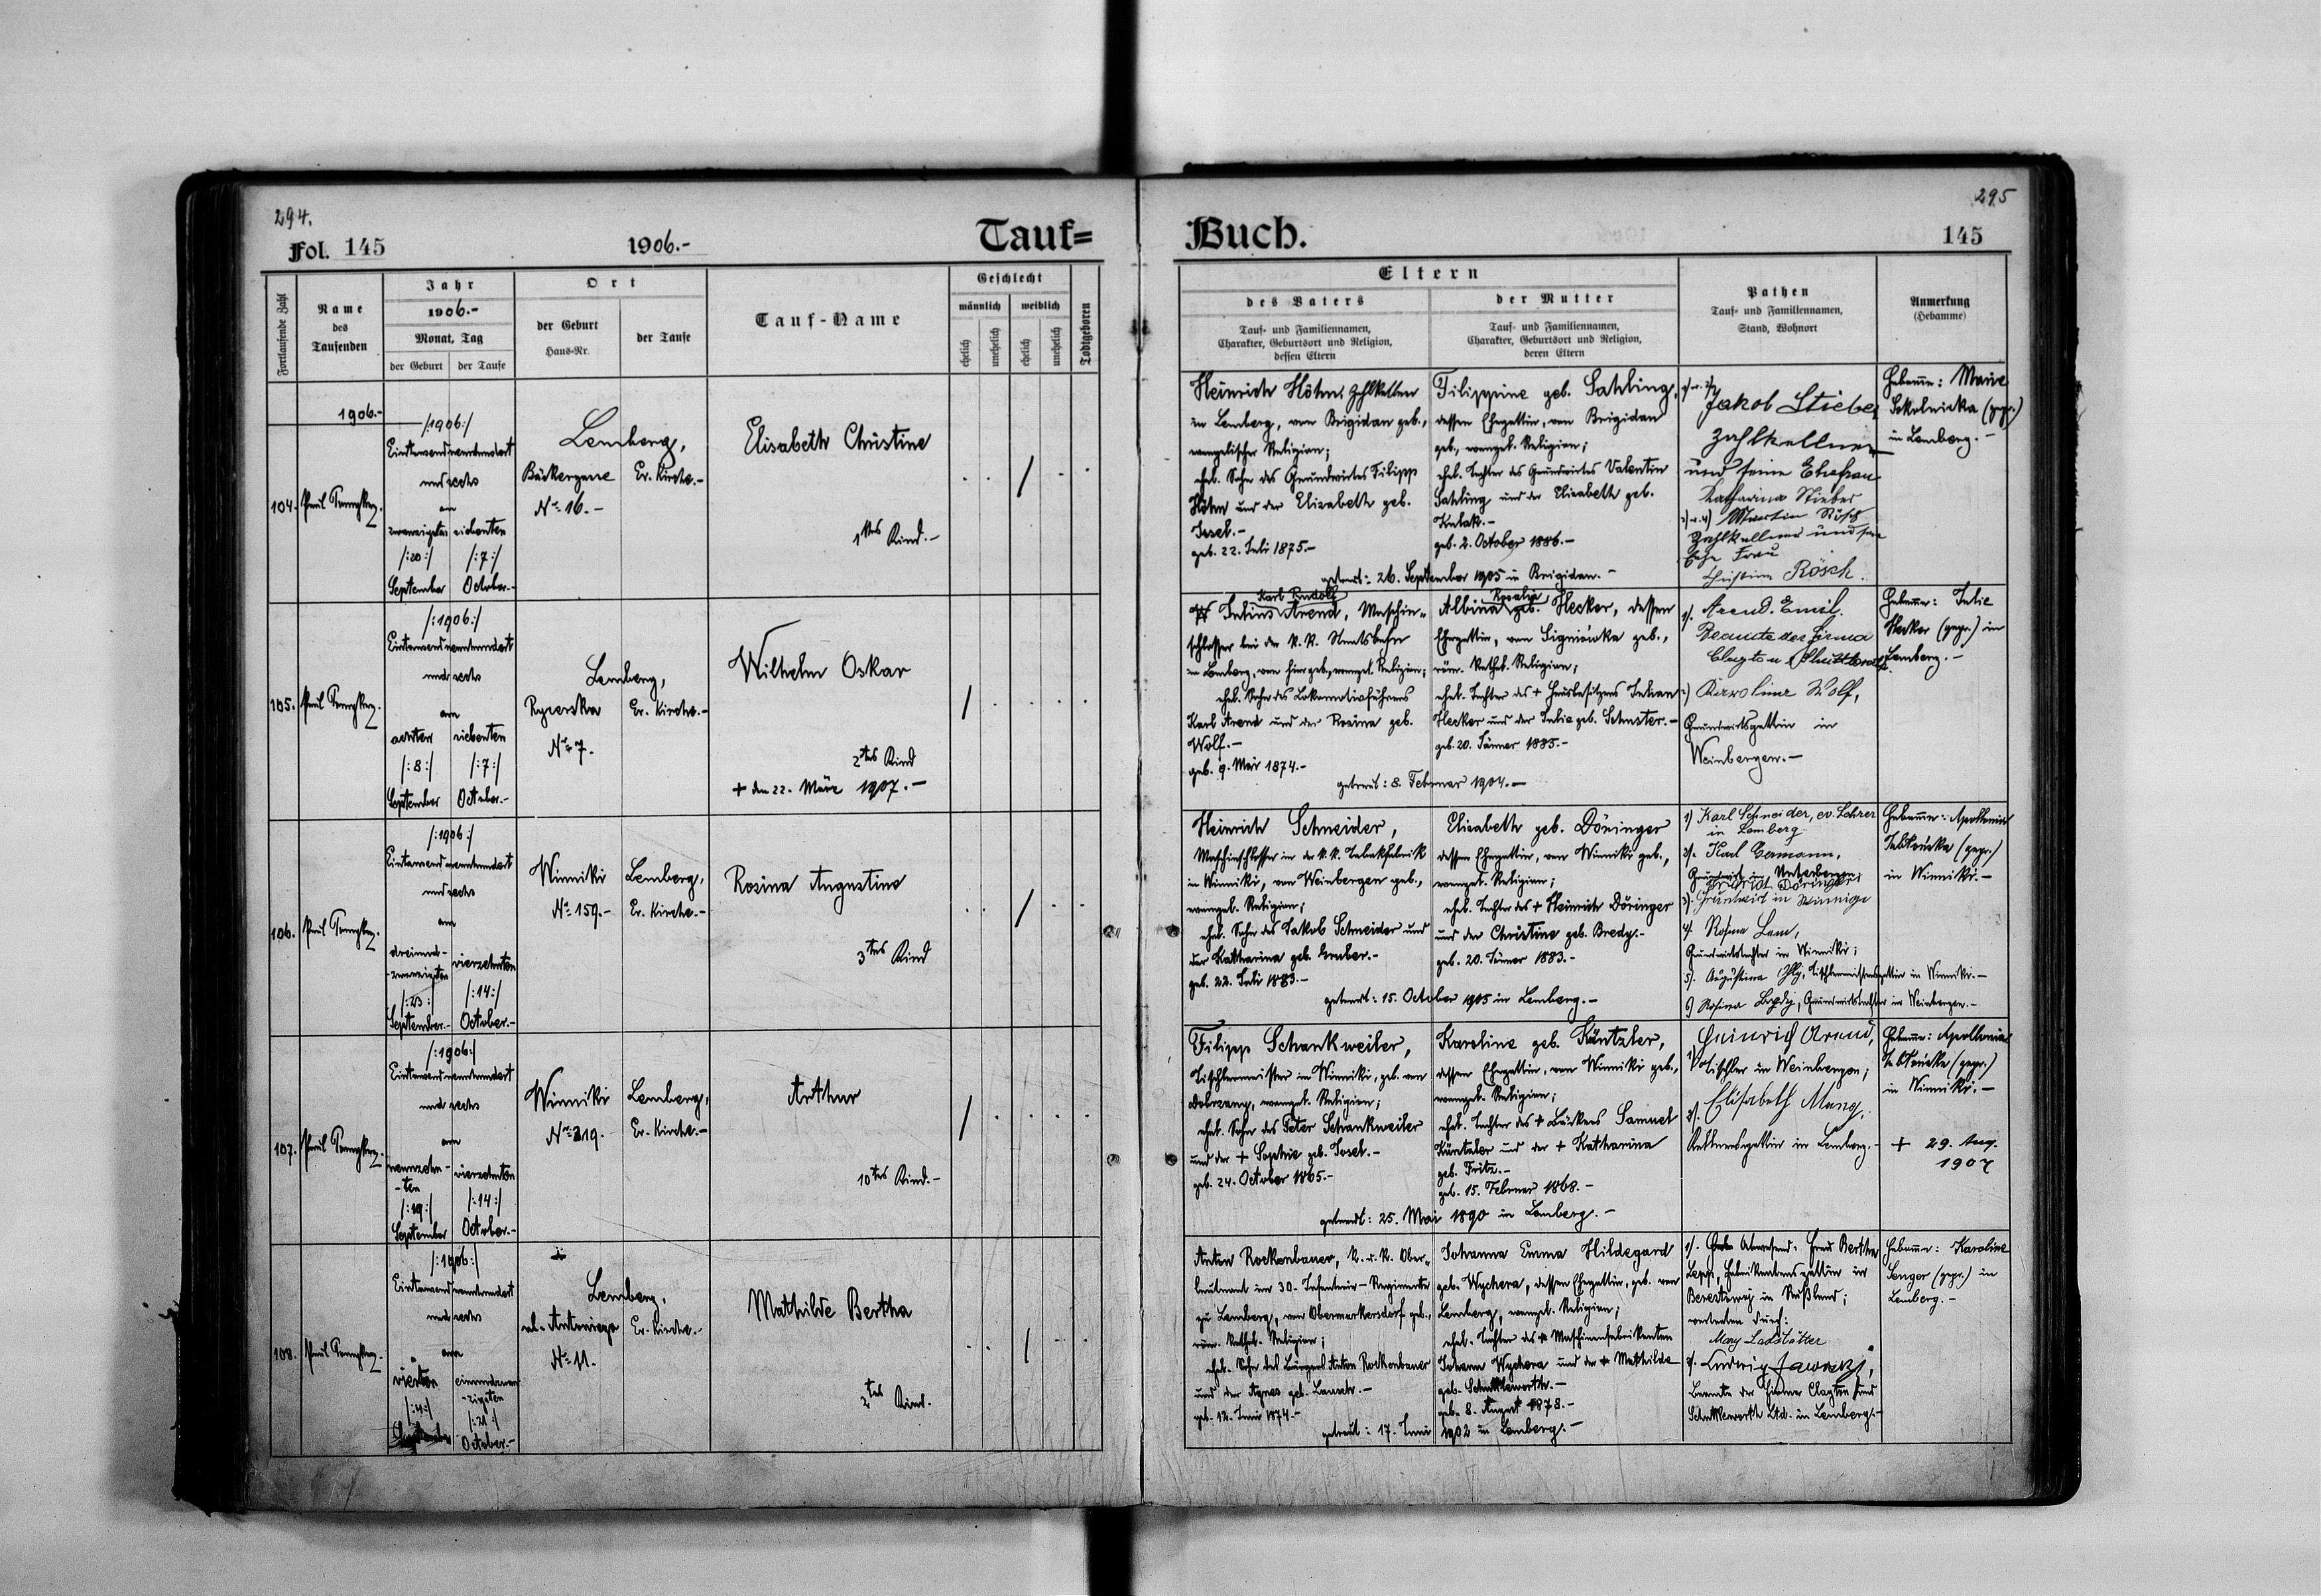 294.
Fol. 145
1906.-
Tauf=
Fortlaufende Zahl
Name
des
Taufenden
Jahr
1906.-
Monat, Tag
der Geburt
der Taufe
Ort
der Geburt
Haus-Nr.
der Taufe
Tauf-Name
Geschlecht
männlich
weiblich
ehelich
unehelich
ehelich
unehelich
Todtgeboren
1906.-
104.
/1906:/
Eintausendneunhundert
und sechs
am
zwanzigsten siebenten
/:20:/ /:7:/
September October.-
Lemberg,
Bäckergasse Ev. Kirche.-
No 16.-
Elisabeth Christine
1tes Kind.-
105.
/:1906:/
Eintausendneunhundert
und sechs
am
achten siebenten
/:8:/ /:7:/
September October.-
Lemberg,
Ev. Kirche.-
No 7.
Wilhelm Oskar
2tes Kind
+ den 22. März 1907.-
106.
/:1906:/
Eintausendneunhundert
und sechs
am
dreiund-
-zwanzigsten vierzehnten
/:23:/ /:14:/
September.- October.-
Winniki Lemberg,
No 159.- Ev. Kirche.-
Rosina Augustine
3tes Kind
107.
/:1906:/
Eintausendneunhundert
und sechs
am
neunzehn-
-ten vierzehnten
/:19:/ /:14:/
September October.-
Winniki Lemberg,
No 219. Ev. Kirche.-
Arthur
10tes Kind.-
108.
/:1906:/
Eintausendneunhundert
und sechs
am
vierten einundzwan-
-zigsten
/:4:/ /:21:/
September October.-
Lemberg,
Ev. Kirche.-
No 11.
Mathilde Bertha
2tes Kind.
295
Buch.
145
Eltern
des Vaters
Tauf- und Familiennamen,
Charakter, Geburtsort und Religion,
dessen Eltern
der Mutter
Tauf- und Familiennamen,
Charakter, Geburtsort und Religion,
deren Eltern
Pathen
Tauf- und Familiennamen,
Stand, Wohnort
Anmerkung
(Hebamme)
Heinrich Höhn, Zahlkellner
in Lemberg, von Brigidau geb.,
evangelischer Religion;
ehel. Sohn des Grundwirtes Filipp
Höhn und der Elisabeth geb.
Josel.-
geb. 22. Juli 1875.-
Filippine geb. Sahling,
dessen Ehegattin, von Brigidau
geb., evangel. Religion;
ehel. Tochter des Grundwirtes Valentin
Sahling und der Elisabeth geb.
Kulak.-
geb. 2. October 1886.-
getraut: 26. September 1905 in Brigidau.-
Jakob Stieber
Zahlkellner
und seine Ehefrau
Katharina Stieber
3) u. 4) Martin Rösch
Zahlkellner und seine
Ehe Frau
Christina Rösch.
Hebamme: Marie
Sokolnicka (gepr.)
in Lemberg.-
Karl Rudolf
Julius Arend, Maschin-
schlosser bei der k.k. Staatsbahn
in Lemberg, von hier geb., evangel. Religion;
ehel. Sohn des Lokomotivführers
Karl Arend und der Rosina geb.
Wolf.-
geb. 9. Mai 1874.-
Rosalia
Albina geb. Hecker, dessen
Ehegattin, von Signiówka geb.,
röm. kathol. Religion;
ehel. Tochter des + Hausbesitzers Johann
Hecker und der Julie geb. Schuster.-
geb. 20. Jänner 1885.-
getraut: 8. Februar 1904.-
1). Arend Emil.
Beamte der Firma
Clayton & Shuttleworth
2) Karolina Wolf,
Grundwirtsgattin in
Weinbergen.-
Hebamme: Julie
Hecker (gepr.) in
Lemberg.-
Heinrich Schneider,
Maschinschlosser in der k.k. Tabakfabrik
in Winniki, von Weinbergen geb.,
evangel. Religion;
ehel. Sohn des Jakob Schneider und
der Katharina geb. Gruber.-
geb. 22. Juli 1883.-
Elisabeth geb. Döringer
dessen Ehegattin, von Winniki geb.,
evangel. Religion;
ehel. Tochter des + Heinrich Döringer
und der Christine geb. Bredy.-
geb. 20. Jänner 1883.-
getraut: 15. October 1905 in Lemberg.-
1) Karl Schneider, ev. Lehrer
in Lemberg.
2). Karl Germann,
Grundwirt in Unterbergen;
3). Grundwirt in Winnige
4). Rosina Lam,
Grundwirtstochter in Winniki;
5). Augustina Tischlermeistersgattin in Winniki.-
6) Rosina Bredy, Grundwirtstochter in Weinbergen.-
Hebamme: Apollonia
(gepr.)
in Winniki.-
Filipp Schankweiler,
Tischlermeister in Winniki, geb. von
Dobrzany, evangel. Religion;
ehel. Sohn des Peter Schankweiler
und der + Sophie geb. Josel.-
geb. 24. October 1865.-
Karoline geb. Küntzler,
dessen Ehegattin, von Winniki geb.,
evangel. Religion;
ehel. Tochter des + Bäckers Samuel
Küntzler und der + Katharina
geb. Fritz.-
geb. 15. Februar 1868.-
getraut: 25. Mai 1890 in Lemberg.-
Heinrich Arend,
1) Tischler in Weinbergen;
2). Elisabeth Mang,
in Lemberg.-
Hebamme: Apollonia
(gepr.)
in Winniki.-
+ 29. Aug.
1907
Anton Rockenbauer, k.u.k. Ober-
leutnant im 30. Infanterie-Regimente
zu Lemberg, von Obermarkersdorf geb.,
röm. kathol. Religion;
ehel. Sohn des Bürgers Anton Rockenbauer
und der Agnes geb. Bausch.-
geb. 12. Juni 1874.-
Johanna Emma Hildegard
geb. Wychera, dessen Ehegattin, geb. von
Lemberg, evangel. Religion;
ehel. Tochter des + Maschinenfabrikanten
Johann Wychera und der + Mathilde
geb. Schuttleworth.-
geb. 8. August 1878.-
getraut: 17. Juni 1902 in Lemberg.-
1). Abwesend: Frau Bertha
Lepp, Fabrikantensgattin in
in Rußland;
vertreten durch:
Mary Ladstätter
2). Ludwig
Beamte der Firma Clayton und
Schuttleworth Ltd. in Lemberg.-
Hebamme: Karoline
Senger (gepr.) in
Lemberg.-